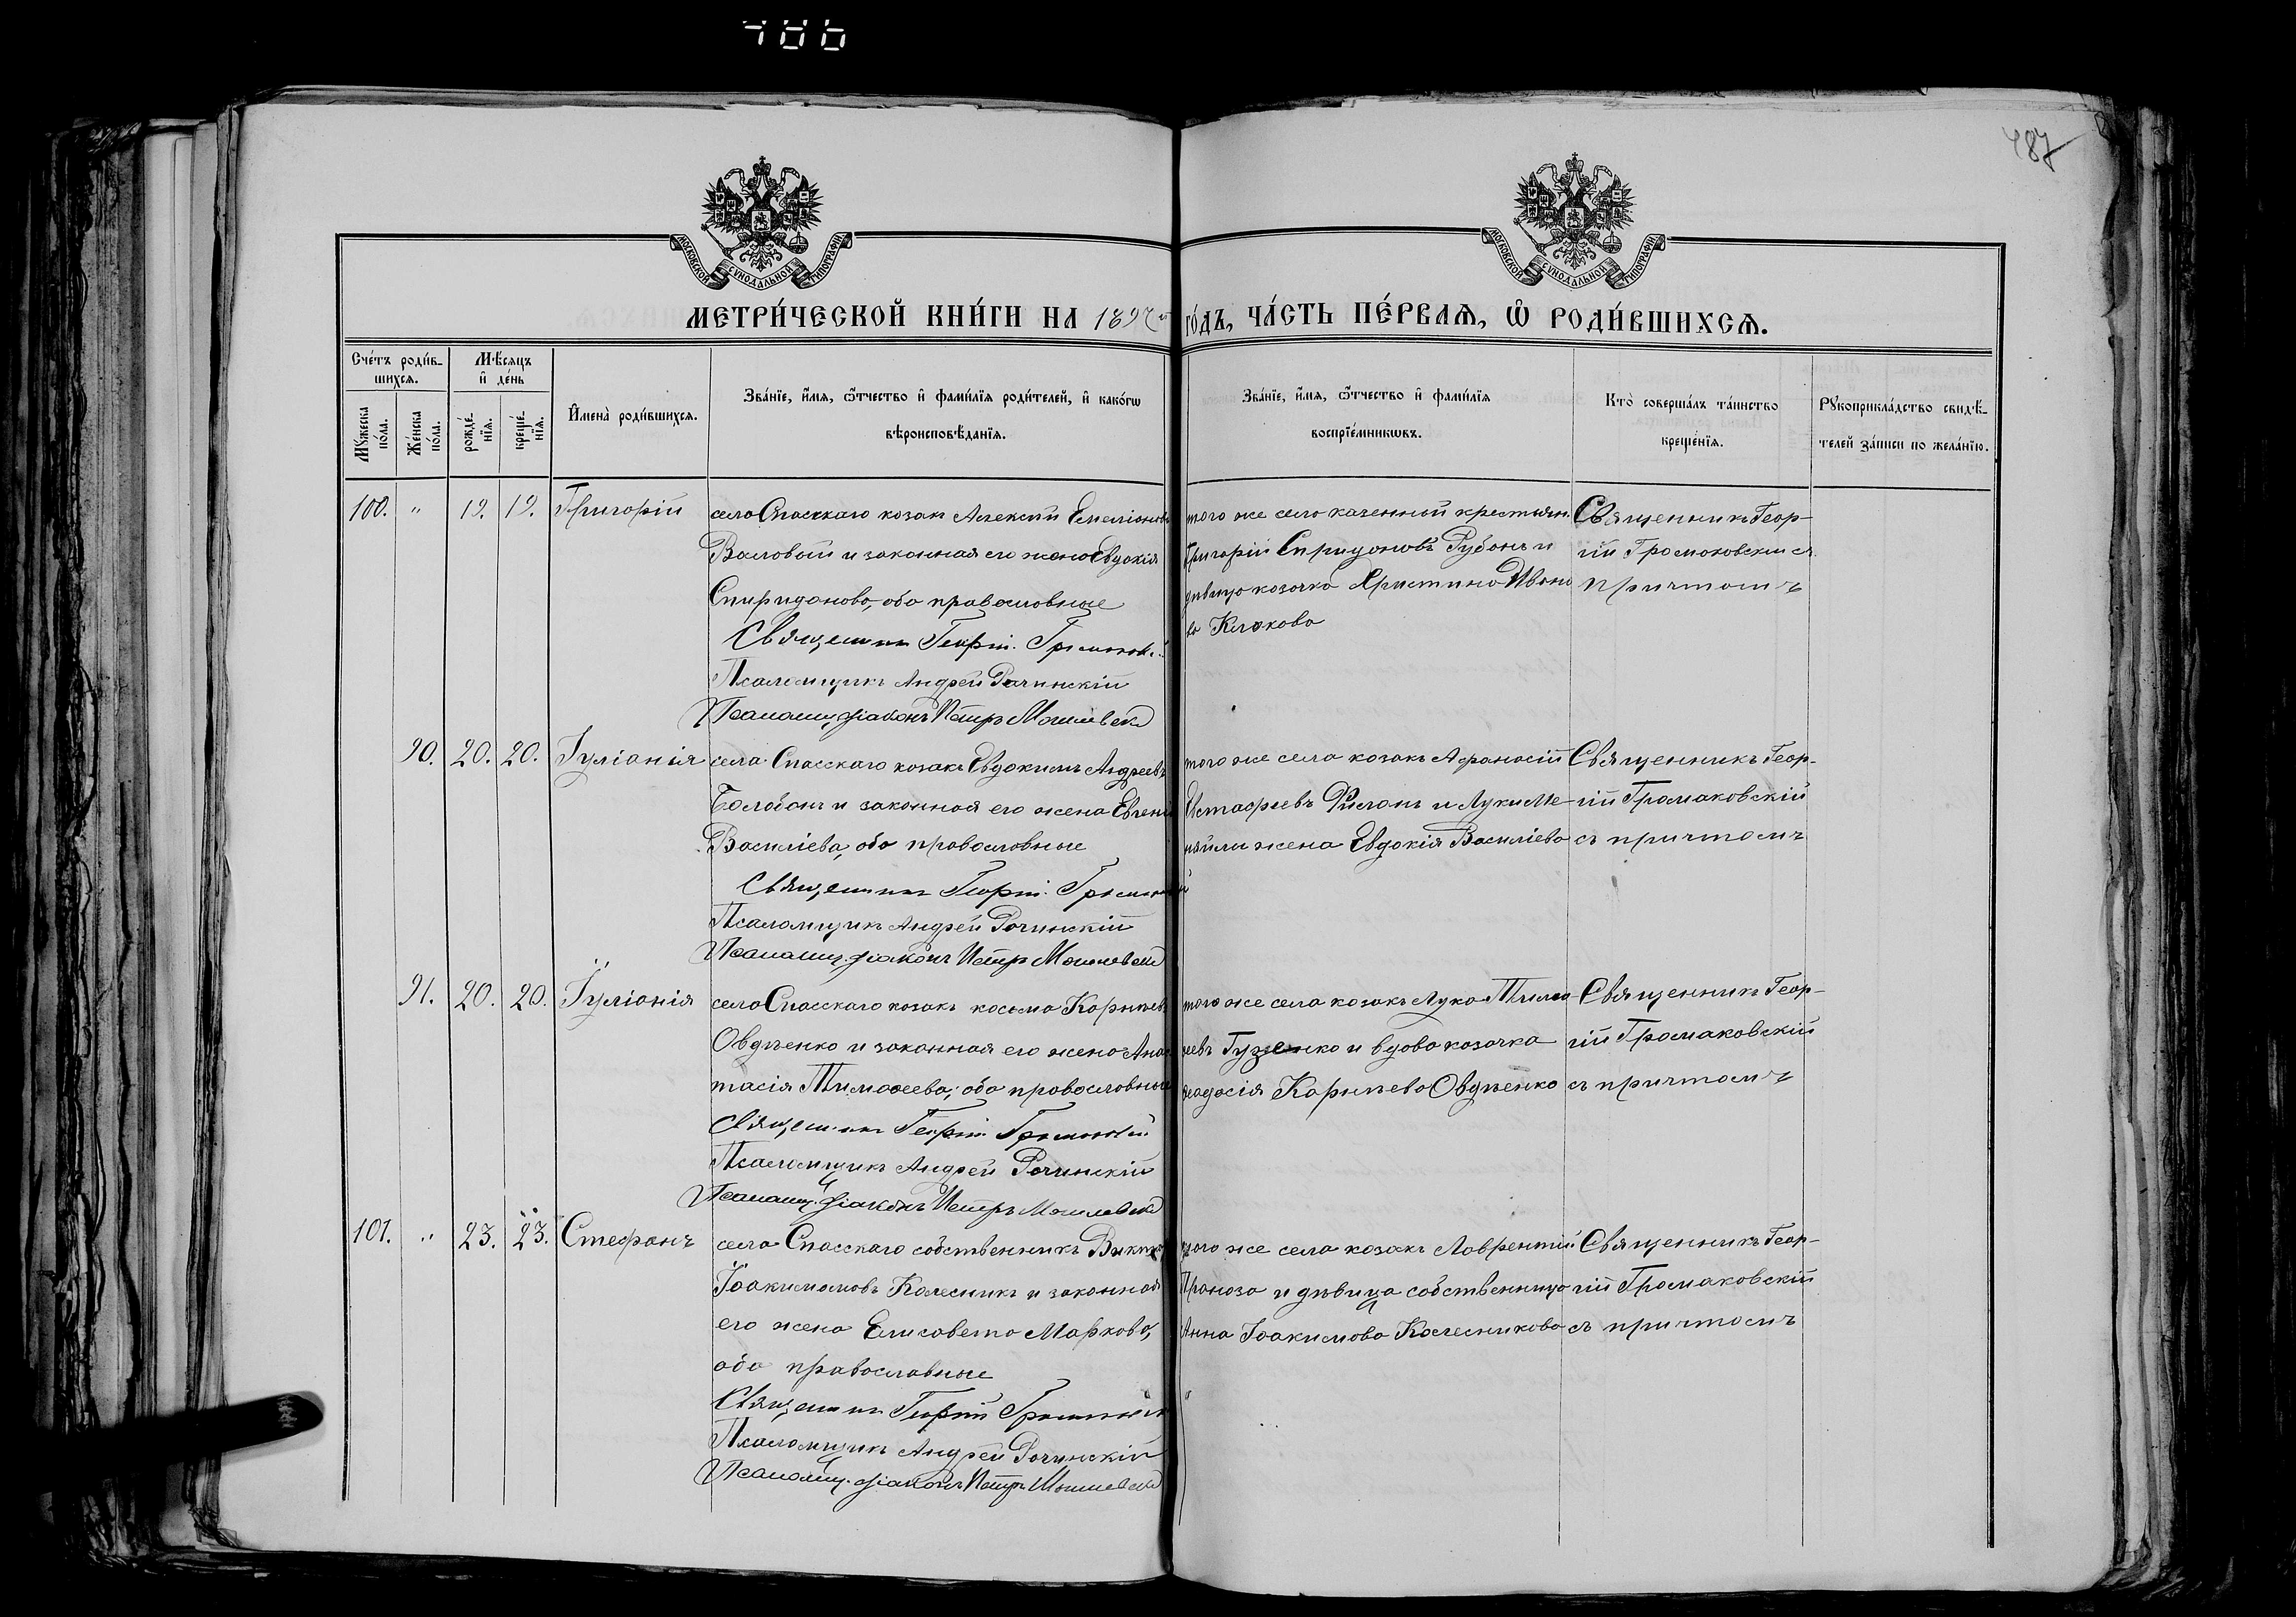 486
487
МОСКОВСКОЙ СѴНОДАЛЬНОЙ ТИПОГРАФІИ
МОСКОВСКОЙ СѴНОДАЛЬНОЙ ТИПОГРАФІИ
МЕТРИ́ЧЕСКОЙ КНИ́ГИ НА 1897 й ГО́ДЪ, ЧА́СТЬ ПЕ́РВАѦ, Ѡ҆ РОДИ́ВШИХСѦ.
Сче́тъ роди́в-
шихсѧ.
Мѣ́сѧцъ
и҆ де́нь
Мꙋ́жеска
по́ла.
Же́нска
по́ла.
рожде́-
нїѧ.
креще́-
нїѧ.
И҆мена̀ роди́вшихсѧ.
Зва́нїе, и҆́мѧ, ѻ҆́тчество и҆ фами́лїѧ роди́телей, и҆ како́гѡ
вѣроисповѣ́данїѧ.
Зва́нїе, и҆́мѧ, ѻ҆́тчество и҆ фами́лїѧ
воспрїе́мникѡвъ.
Кто̀ соверша́лъ та́инство
креще́нїѧ.
Рꙋкоприкла́дство свидѣ́-
телей за́писи по жела́нїю.
100. " 19. 19. Григорій
села Спасскаго козакъ Алексѣй Емеліановъ
Валовой и законная его жена Евдокія
Спиридонова, оба православные
Священникъ Георгій Громаков.
Псаломщикъ Андрей Рачинскій
Псаломщ. діаконъ Петръ Могилевск
того же села казенной крестьян.
Григорій Спиридоновъ Рубанъ и
дѣвица козачка Христина Ивано
ва Клокова
Священникъ Геор-
гій Громаковскій съ
причтомъ
90. 20. 20. Іуліанія
села Спасскаго козакъ Евдокимъ Андреевъ
Балабанъ и законная его жена Евгенія
Василіева, оба православные
Священникъ Георгій Громаков
Псаломщикъ Андрей Рачинскій
Псаломщ. діаконъ Петръ Могилевск
того же села козакъ Афанасій
Евстафіевъ и Луки Ме-
жена Евдокія Василіева
Священникъ Геор-
гій Громаковскій
съ причтомъ
91. 20. 20. Іуліанія
села Спасскаго козакъ Косьма Карпіевъ
Овдѣенко и законная его жена Анас
тасія Тимоѳеева, оба православные
Священникъ Георгій Громаковскій
Псаломщикъ Андрей Рачинскій
Псаломщ. діаконъ Петръ Могилевск
того же села козакъ Лука Тимо
ѳеевъ Гузенко и вдова козачка
Ѳеодосія Карпіева Овдѣенко
Священникъ Геор-
гій Громаковскій
съ причтомъ
101. " 23. 23. Стефанъ
села Спасскаго собственникъ
Іоакимовъ Колесникъ и законная
его жена Елисавета Маркова,
оба православные
Священникъ Георгій Громаковскій
Псаломщикъ Андрей Рачинскій
Псаломщ. діаконъ Петръ Могилевск
того же села козакъ Лаврентій
Праноза и дѣвица собственница
Анна Іоакимова Колесникова
Священникъ Геор-
гій Громаковскій
съ причтомъ